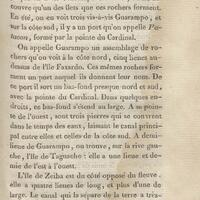 trouve qu'un des îlets que ces rochers forment.
En été, on en voit trois vis-à-vis Guarampo, et
sur la côte sud, il y a un port qu'on appelle Pa-
formé par la pointe du Cardinal.
On appelle Guarampo un assemblage de ro-
chers qu'on voit à la côte nord, cinq lieues au-
dessous de l'île Faxardo. Ces mêmes rochers for-
ment un port auquel ils donnent leur nom. De
ce port il sort un bas-fond presque nord et sud,
avec la pointe du Cardinal. Dans quelques en-
droits, ce bas-fond s'étend au large. A sa poin-
te de l'ouest, sont trois pierres qui se couvrent
dans le temps des eaux, laissant le canal princi-
pal entre elles et celles de la côte sud. A demi-
lieue de Guarampo, on trouve, sur la rive gau-
che, l'île de Taguache : elle a une lieue et de-
mie de l'est à l'ouest.
L'île de Zeiba est du côté opposé du fleuve,
elle a quatre lieues de long, et plus d'une de
large. Le canal qui la sépare de la terre a trois-